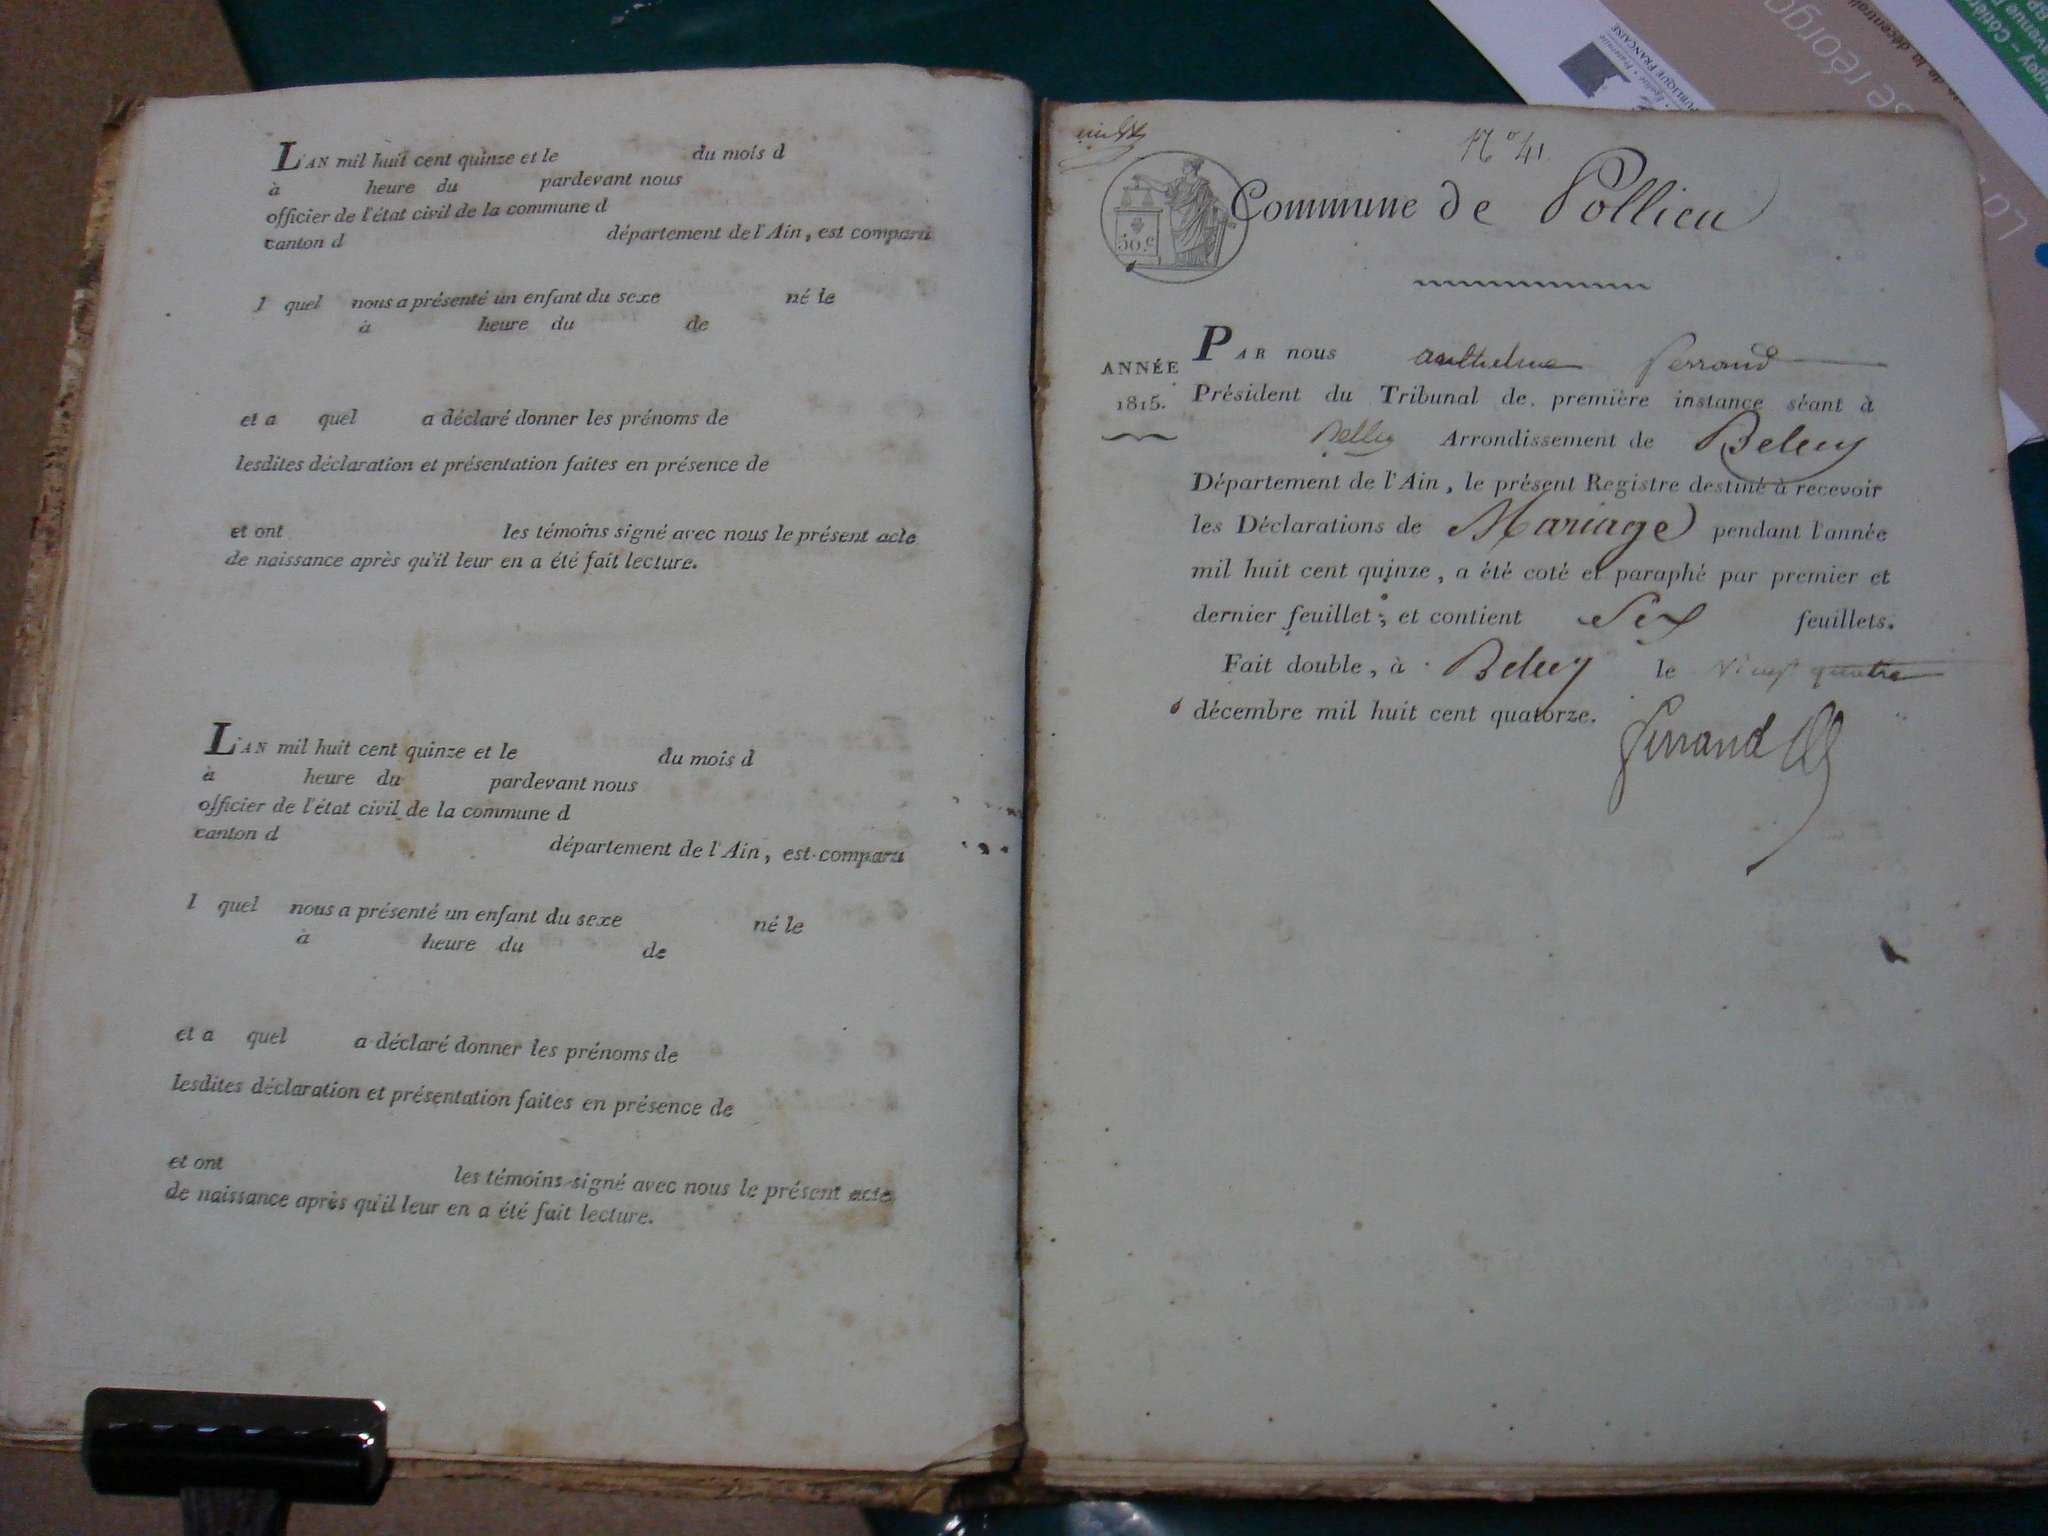 L'AN mil huit cent quinze et le du mois d
à heure du pardevant nous
officier de l'état civil de la commune d
canton d département de l'Ain, est comparu
l quel nous a présenté un enfant du sexe né le
à heure du de
et a quel a déclaré donner les prénoms de
lesdites déclaration et présentation faites en présence de
et ont les témoins signé avec nous le présent acte
de naissance après qu'il leur en a été fait lecture.
L'AN mil huit cent quinze et le du mois d
à heure du pardevant nous
officier de l'état civil de la commune d
canton d département de l'Ain, est comparu
l quel nous a présenté un enfant du sexe né le
à heure du de
et a quel a déclaré donner les prénoms de
lesdites déclaration et présentation faites en présence de
et ont les témoins signé avec nous le présent acte
de naissance après qu'il leur en a été fait lecture.
N° 41.
50.c
Commune de Pollieu
ANNÉE
1815.
PAR nous anthelme ferrand
Président du Tribunal de première instance séant à
Belley Arrondissement de Belley
Département de l'Ain, le présent Registre destiné à recevoir
les Déclarations de Mariage pendant l'année
mil huit cent quinze, a été coté et paraphé par premier et
dernier feuillet; et contient Six feuillets.
Fait double, à Belley le Vingt quatre
décembre mil huit cent quatorze.
ferrand
RÉPUBLIQUE FRANÇAISE
se réorga
de la décentrali